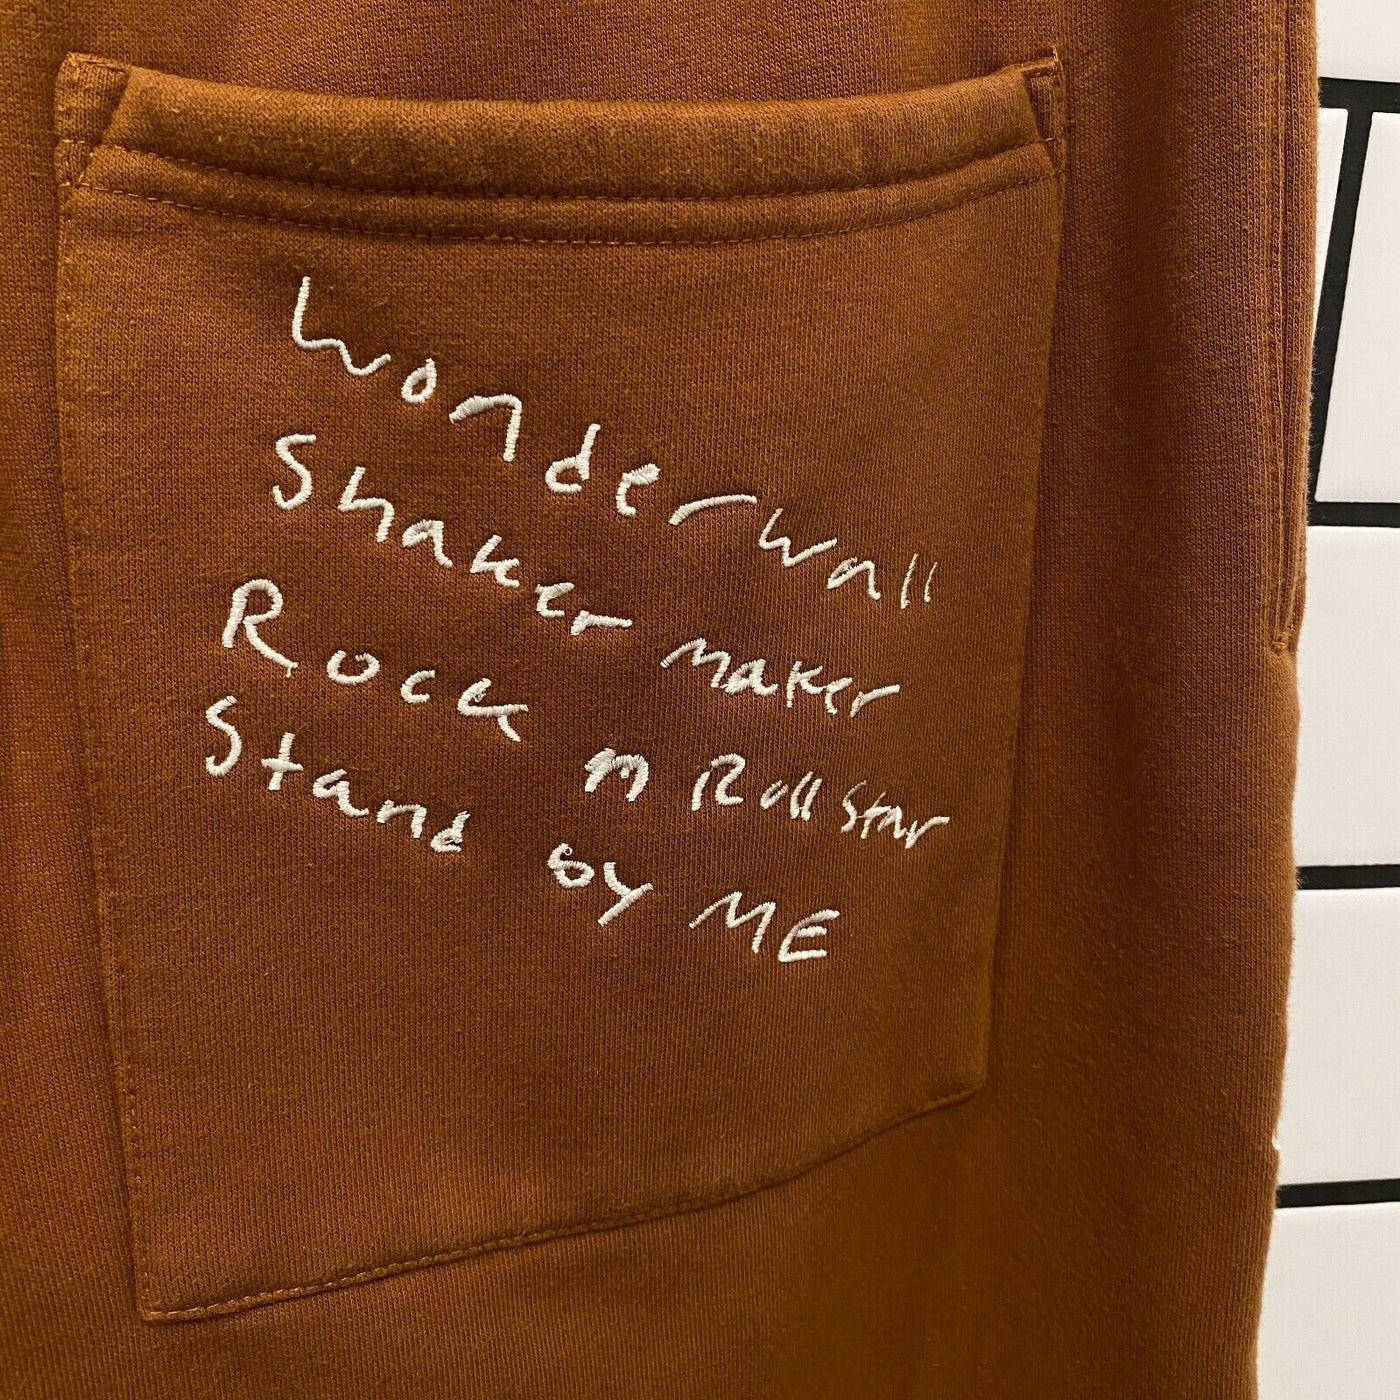 Wonderwall
Shaker maker
Rock n Roll Star
Stand by ME